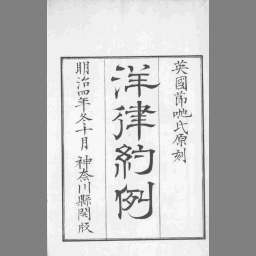 英國節吔氏原刻
洋律約例
明治四年冬十月 神奈川縣関版